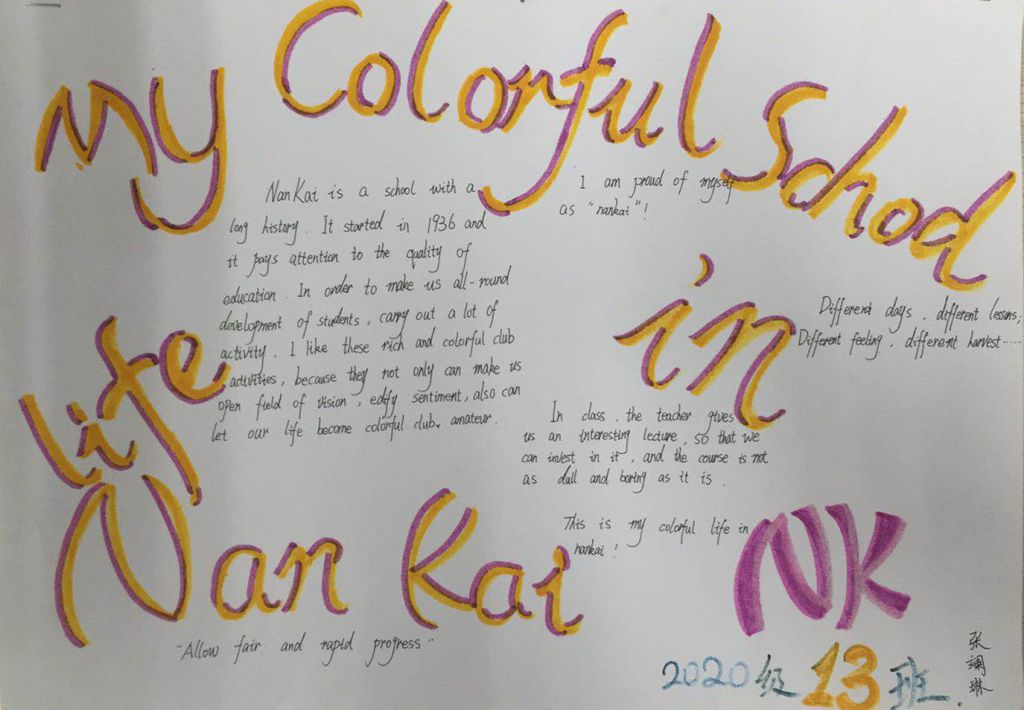 My Colorful School
life in
Nan Kai
NanKai is a school with a
long history. It started in 1936 and
it pays attention to the quality of
education. In order to make us all-round
development of students, carry out a lot of
activity. I like these rich and colorful club
activities, because they not only can make us
open field of vision, edify sentiment, also can
let our life become colorful club. amateur.
I am proud of myself
as "nankai"!
Different days, different lessons;
Different feeling, different harvest······
In class, the teacher gives
us an interesting lecture, so that we
can invest in it, and the course is not
as dull and boring as it is.
This is my colorful life in
nankai!
"Allow fair and rapid progress"
NK
2020级13班.
张斓琳